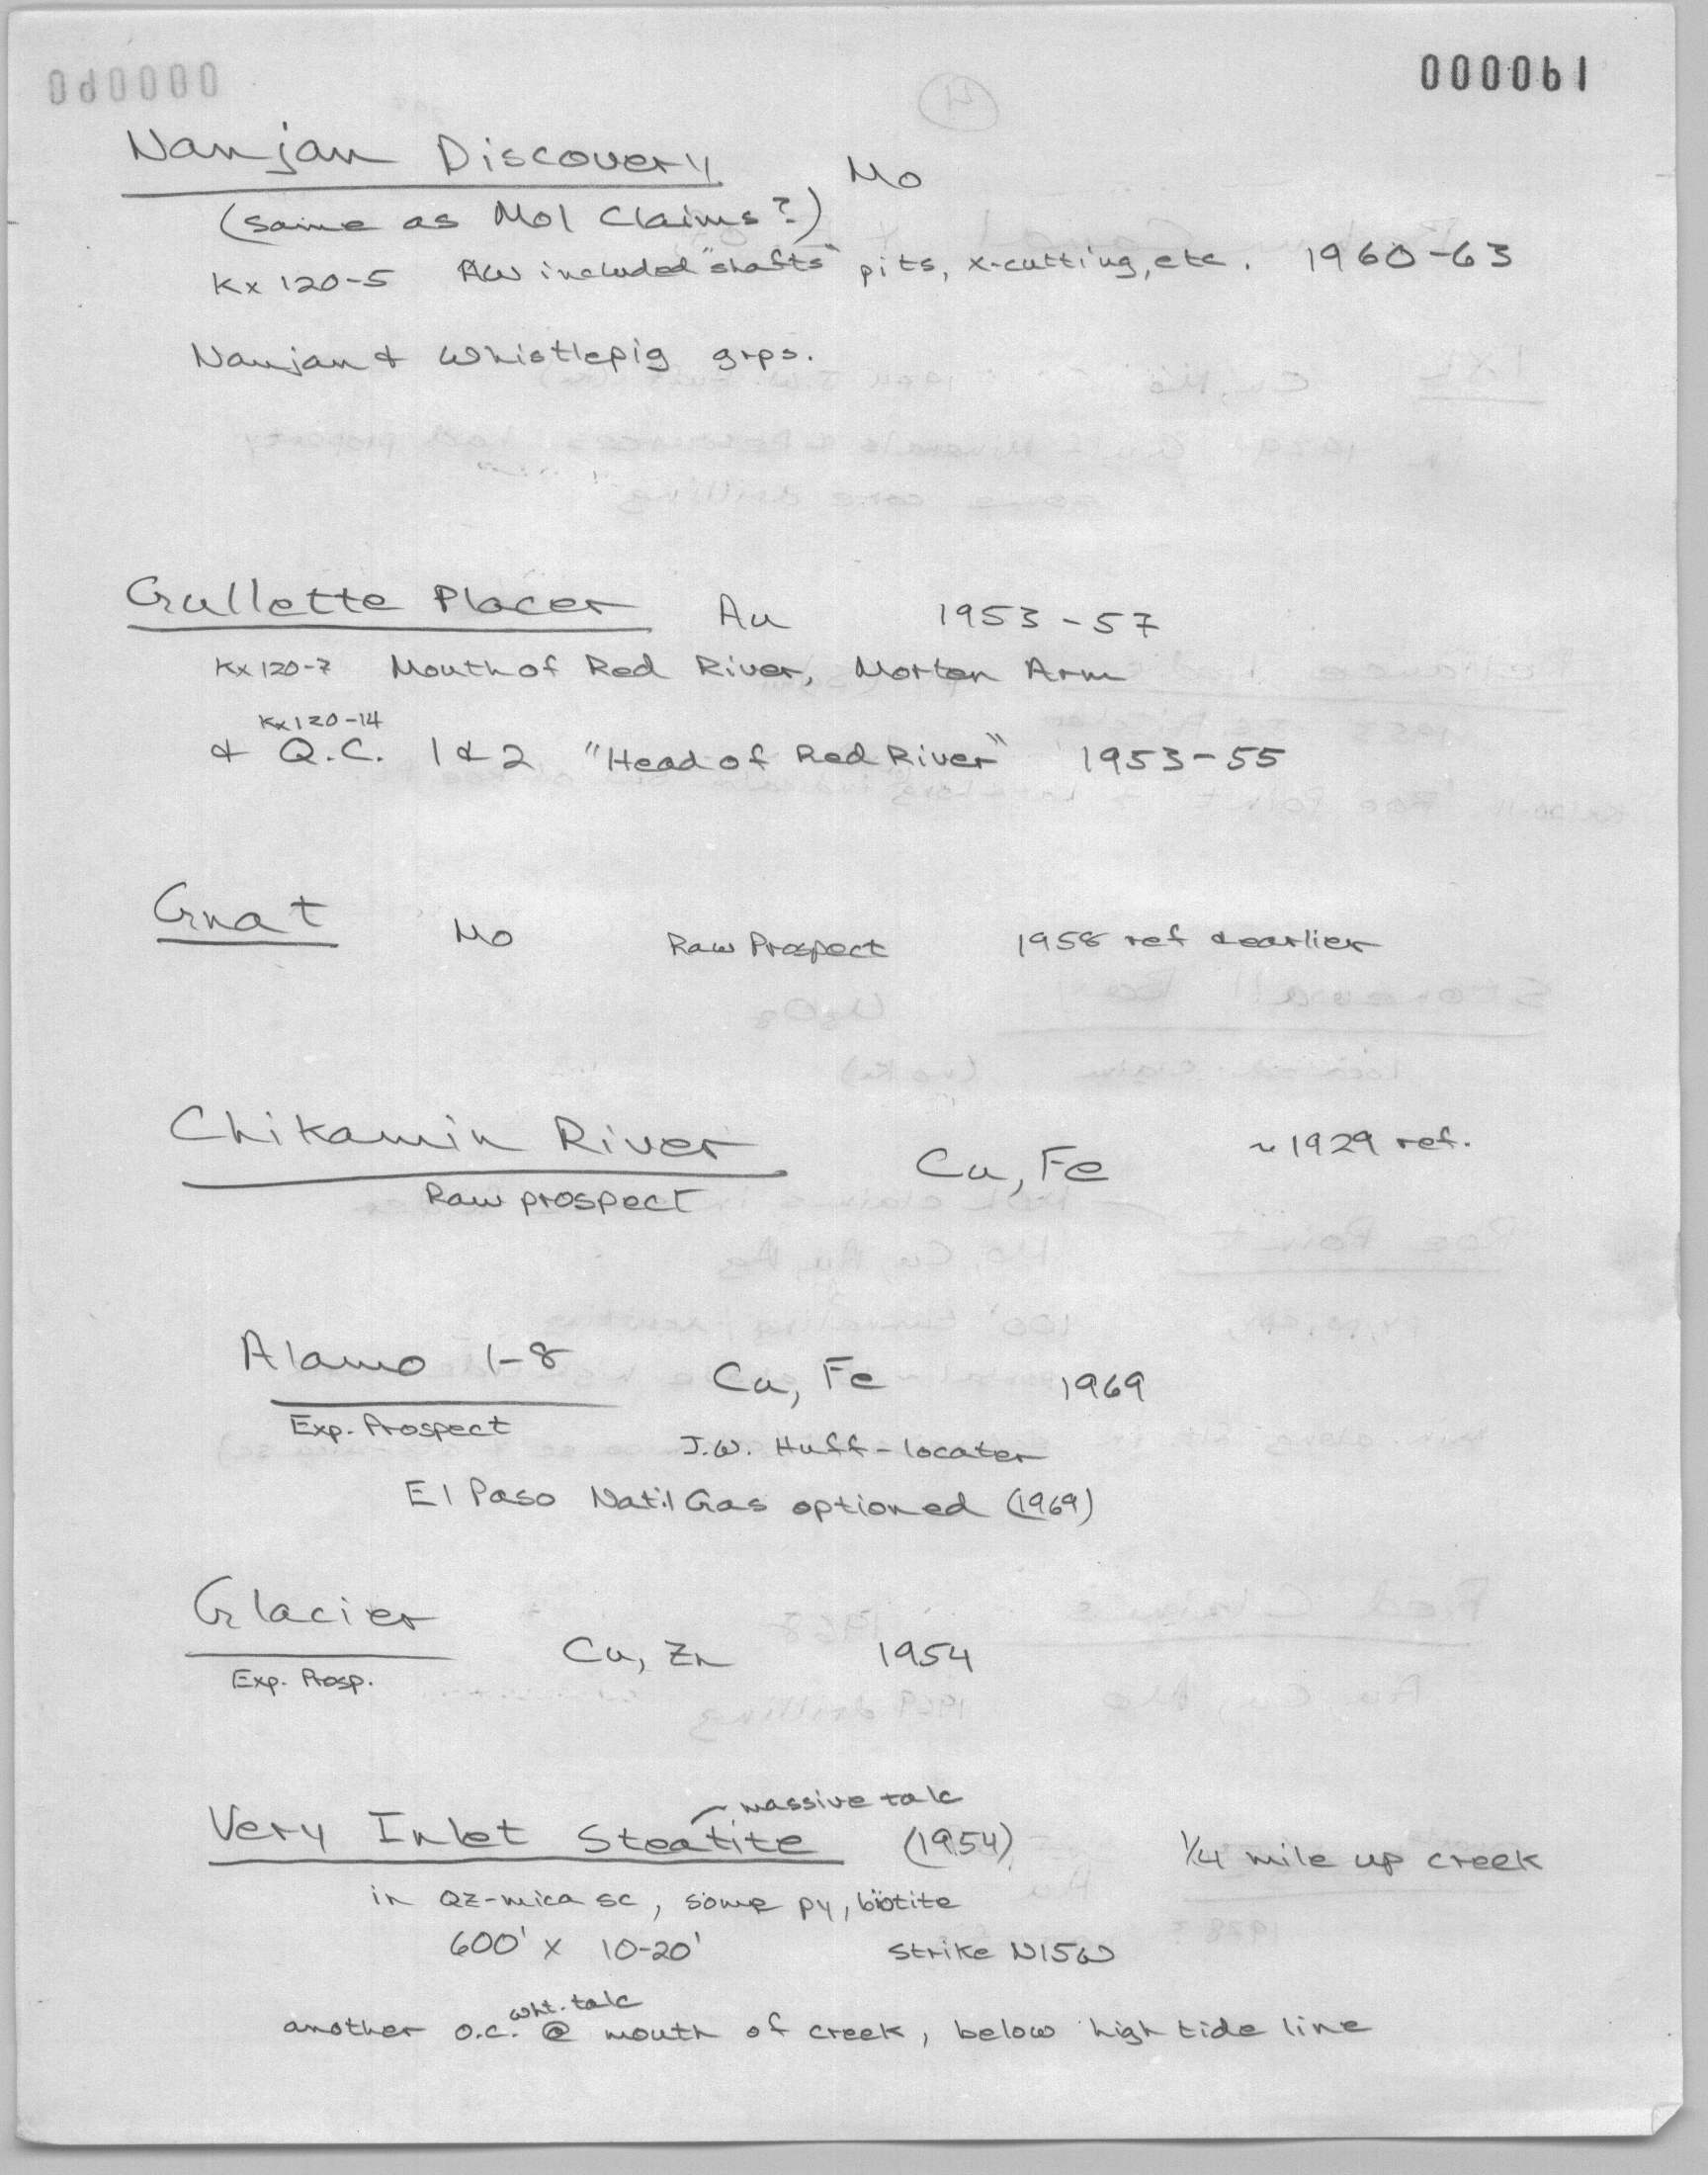 000061
Nanjan Discovery Mo
(same as Mol Claims?)
Kx 120-5 AW included "shafts" pits, x-cutting, etc. 1960-63
Nanjan & Whistlepig grps.
Gullette Placer Au 1953-57
Kx 120-7 Mouth of Red River, Morton Arm
Kx120-14
& Q.C. 1 & 2 "Head of Red River" 1953-55
Gnat Mo Raw Prospect 1958 ref & earlier
Chikamin River Cu, Fe ~1929 ref.
Raw prospect
Alamo 1-8 Cu, Fe 1969
Exp. Prospect J.W. Huff - locater
El Paso Nat'l Gas optioned (1969)
Glacier Cu, Zn 1954
Exp. Prosp.
massive talc
Very Inlet Steatite (1954) 1/4 mile up creek
in Qz-mica sc, some py, biotite
600' x 10-20' strike N15W
wht. talc
another o.c. @ mouth of creek, below high tide line